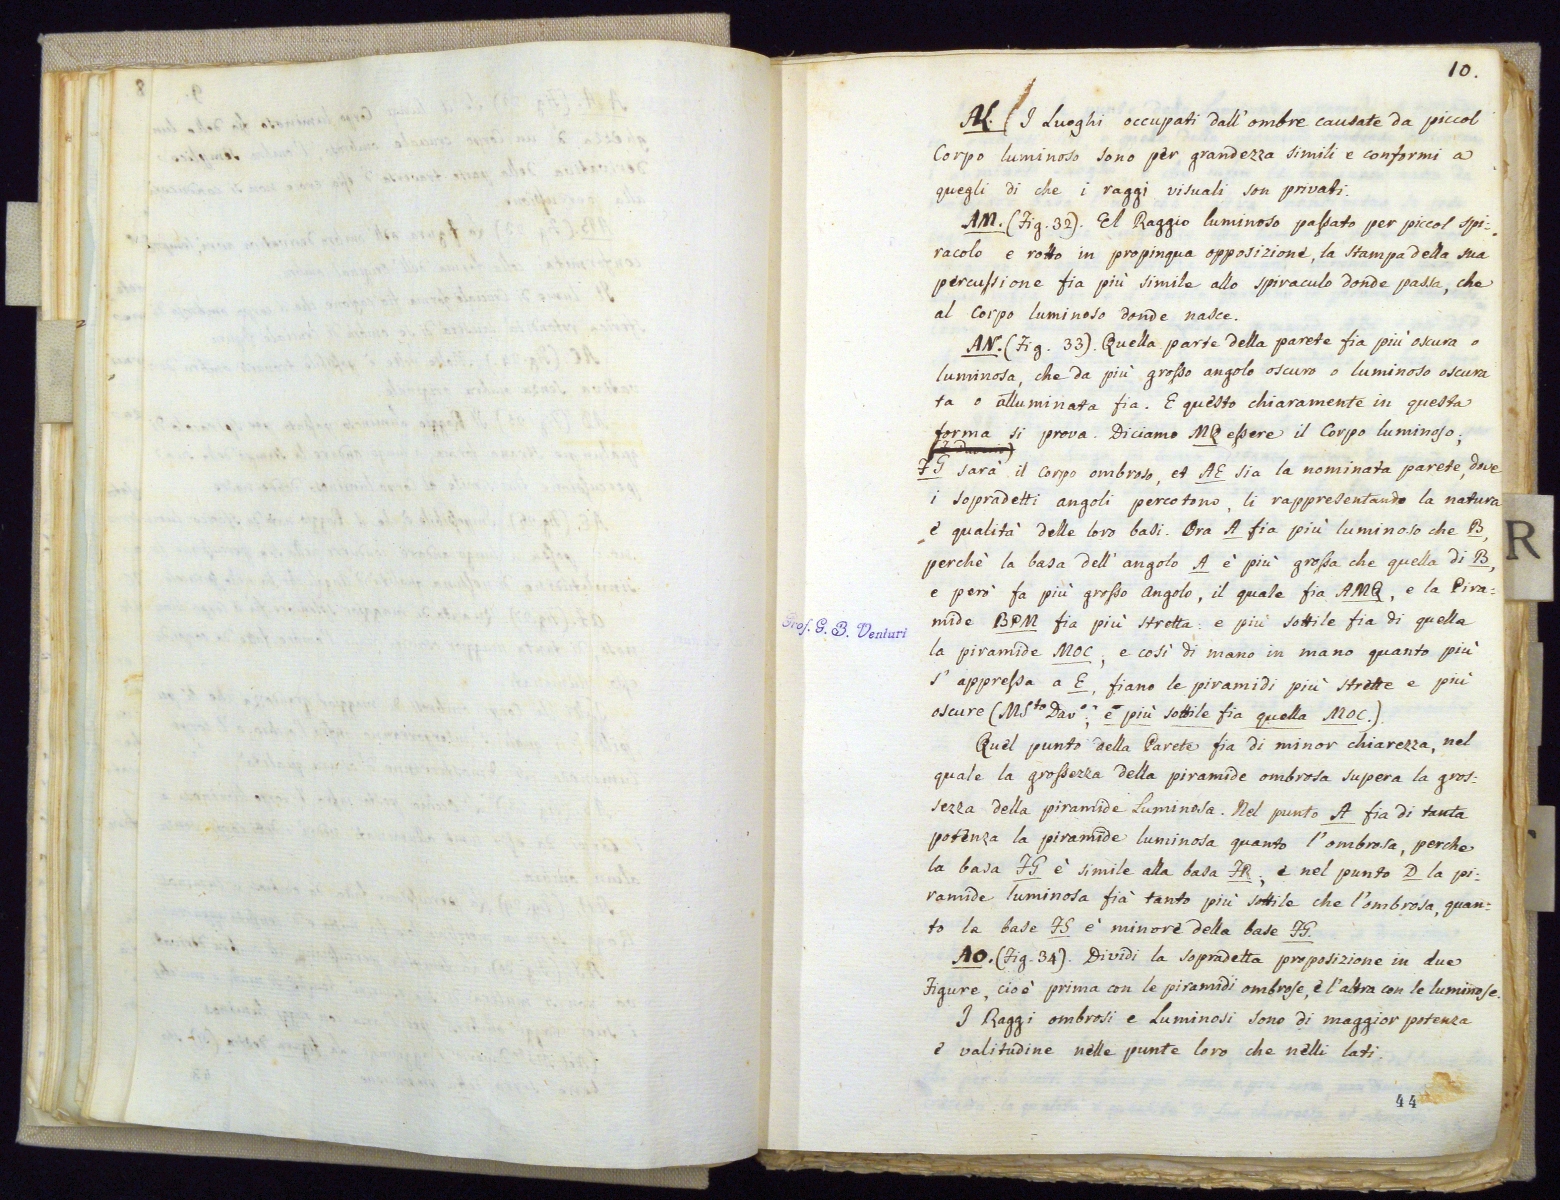 10.
AL. I Luoghi occupati dall' ombre causate da piccol
Corpo luminoso sono per grandezza simili e conformi a
quegli di che i raggi visuali son privati.
AM. (Fig. 32). El Raggio luminoso passato per piccol spi=
racolo e rotto in propinqua opposizione, la stampa della sua
percussione fia più simile allo spiraculo donde passa, che
al Corpo luminoso donde nasce.
AN. (Fig. 33). Quella parte della parete fia più oscura o
luminosa, che da più grosso angolo oscuro o luminoso oscura
ta o alluminata fia. E questo chiaramente in questa
forma si prova. Diciamo MQ essere il Corpo luminoso;
FG sarà il corpo ombroso, et AE sia la nominata parete, dove
i sopradetti angoli percotono, li rappresentando la natura
e qualità delle loro basi. Ora A fia più luminoso che B,
perchè la basa dell' angolo A è più grossa che quella di B,
e però fa più grosso angolo, il quale fia AMQ, e la Pira=
mide BPM fia più stretta: e più sottile fia di quella
la piramide MOC; e così di mano in mano quanto più
s' appressa a E, fiano le piramidi più strette e più
oscure (MSto Davo; e più sottile fia quella MOC.).
Quel punto della Parete fia di minor chiarezza, nel
quale la grossezza della piramide ombrosa supera la gros=
sezza della piramide Luminosa. Nel punto A fia di tanta
potenza la piramide luminosa quanto l' ombrosa, perche
la basa FG è simile alla basa FR; e nel punto D la pi=
ramide luminosa fia tanto più sottile che l' ombrosa, quan=
to la base FS è minore della base FG.
AO. (Fig. 34). Dividi la sopradetta proposizione in due
Figure, cioè prima con le piramidi ombrose, e l' altra con le luminose.
I Raggi ombrosi e Luminosi sono di maggior potenza
e valitudine nelle punte loro che nelli lati.
44
Prof. G. B. Venturi
R